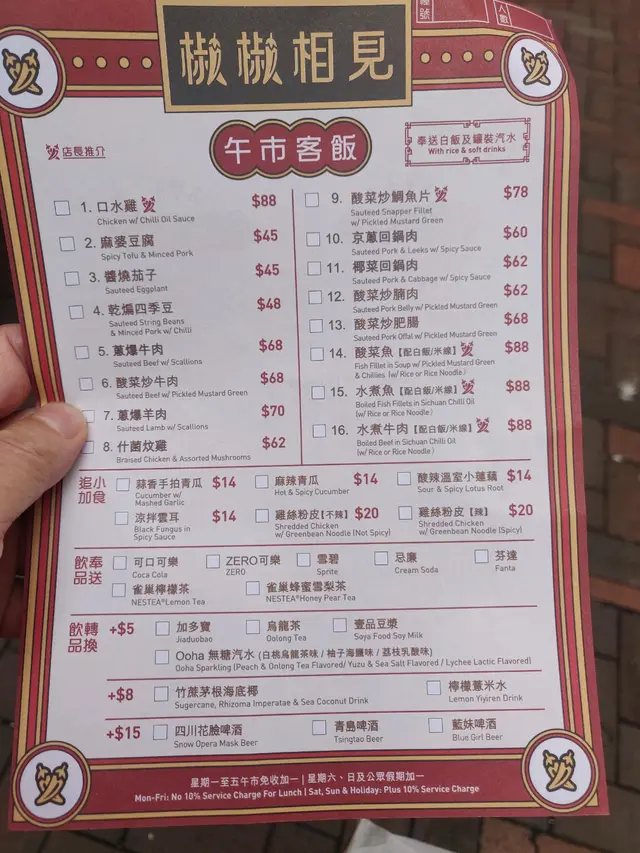 檯號
人數
椒椒相見
午市客飯
店長推介
奉送白飯及罐裝汽水
With rice & soft drinks
1. 口水雞 $88
Chicken w/ Chilli Oil Sauce
2. 麻婆豆腐 $45
Spicy Tofu & Minced Pork
3. 醬燒茄子 $45
Sauteed Eggplant
4. 乾煸四季豆 $48
Sauteed String Beans
& Minced Pork w/ Chilli
5. 蔥爆牛肉 $68
Sauteed Beef w/ Scallions
6. 酸菜炒牛肉 $68
Sauteed Beef w/ Pickled Mustard Green
7. 蔥爆羊肉 $70
Sauteed Lamb w/ Scallions
8. 什菌炆雞 $62
Braised Chicken & Assorted Mushrooms
9. 酸菜炒鯛魚片 $78
Sauteed Snapper Fillet
w/ Pickled Mustard Green
10. 京蔥回鍋肉 $60
Sauteed Pork & Leeks w/ Spicy Sauce
11. 椰菜回鍋肉 $62
Sauteed Pork & Cabbage w/ Spicy Sauce
12. 酸菜炒腩肉 $62
Sauteed Pork Belly w/ Pickled Mustard Green
13. 酸菜炒肥腸 $68
Sauteed Pork Offal w/ Pickled Mustard Green
14. 酸菜魚【配白飯/米線】 $88
Fish Fillet in Soup w/ Pickled Mustard Green
& Chillies (w/ Rice or Rice Noodle)
15. 水煮魚【配白飯/米線】 $88
Boiled Fish Fillets in Sichuan Chilli Oil
(w/ Rice or Rice Noodle)
16. 水煮牛肉【配白飯/米線】 $88
Boiled Beef in Sichuan Chilli Oil
(w/ Rice or Rice Noodle)
追加小食
蒜香手拍青瓜 $14
Cucumber w/
Mashed Garlic
麻辣青瓜 $14
Hot & Spicy Cucumber
酸辣溫室小蓮藕 $14
Sour & Spicy Lotus Root
涼拌雲耳 $14
Black Fungus in
Spicy Sauce
雞絲粉皮【不辣】 $20
Shredded Chicken
w/ Greenbean Noodle (Not Spicy)
雞絲粉皮【辣】 $20
Shredded Chicken
w/ Greenbean Noodle (Spicy)
奉送飲品
可口可樂
Coca Cola
ZERO可樂
ZERO
雪碧
Sprite
忌廉
Cream Soda
芬達
Fanta
雀巢檸檬茶
NESTEA®Lemon Tea
雀巢蜂蜜雪梨茶
NESTEA®Honey Pear Tea
轉換飲品
+$5
加多寶
Jiaduobao
烏龍茶
Oolong Tea
壹品豆漿
Soya Food Soy Milk
Ooha 無糖汽水 (白桃烏龍茶味 / 柚子海鹽味 / 荔枝乳酸味)
Ooha Sparkling (Peach & Onlong Tea Flavored/ Yuzu & Sea Salt Flavored / Lychee Lactic Flavored)
+$8
竹蔗茅根海底椰
Sugercane, Rhizoma Imperatae & Sea Coconut Drink
檸檬薏米水
Lemon Yiyiren Drink
+$15
四川花臉啤酒
Snow Opera Mask Beer
青島啤酒
Tsingtao Beer
藍妹啤酒
Blue Girl Beer
星期一至五午市免收加一 | 星期六、日及公眾假期加一
Mon-Fri: No 10% Service Charge For Lunch | Sat, Sun & Holiday: Plus 10% Service Charge